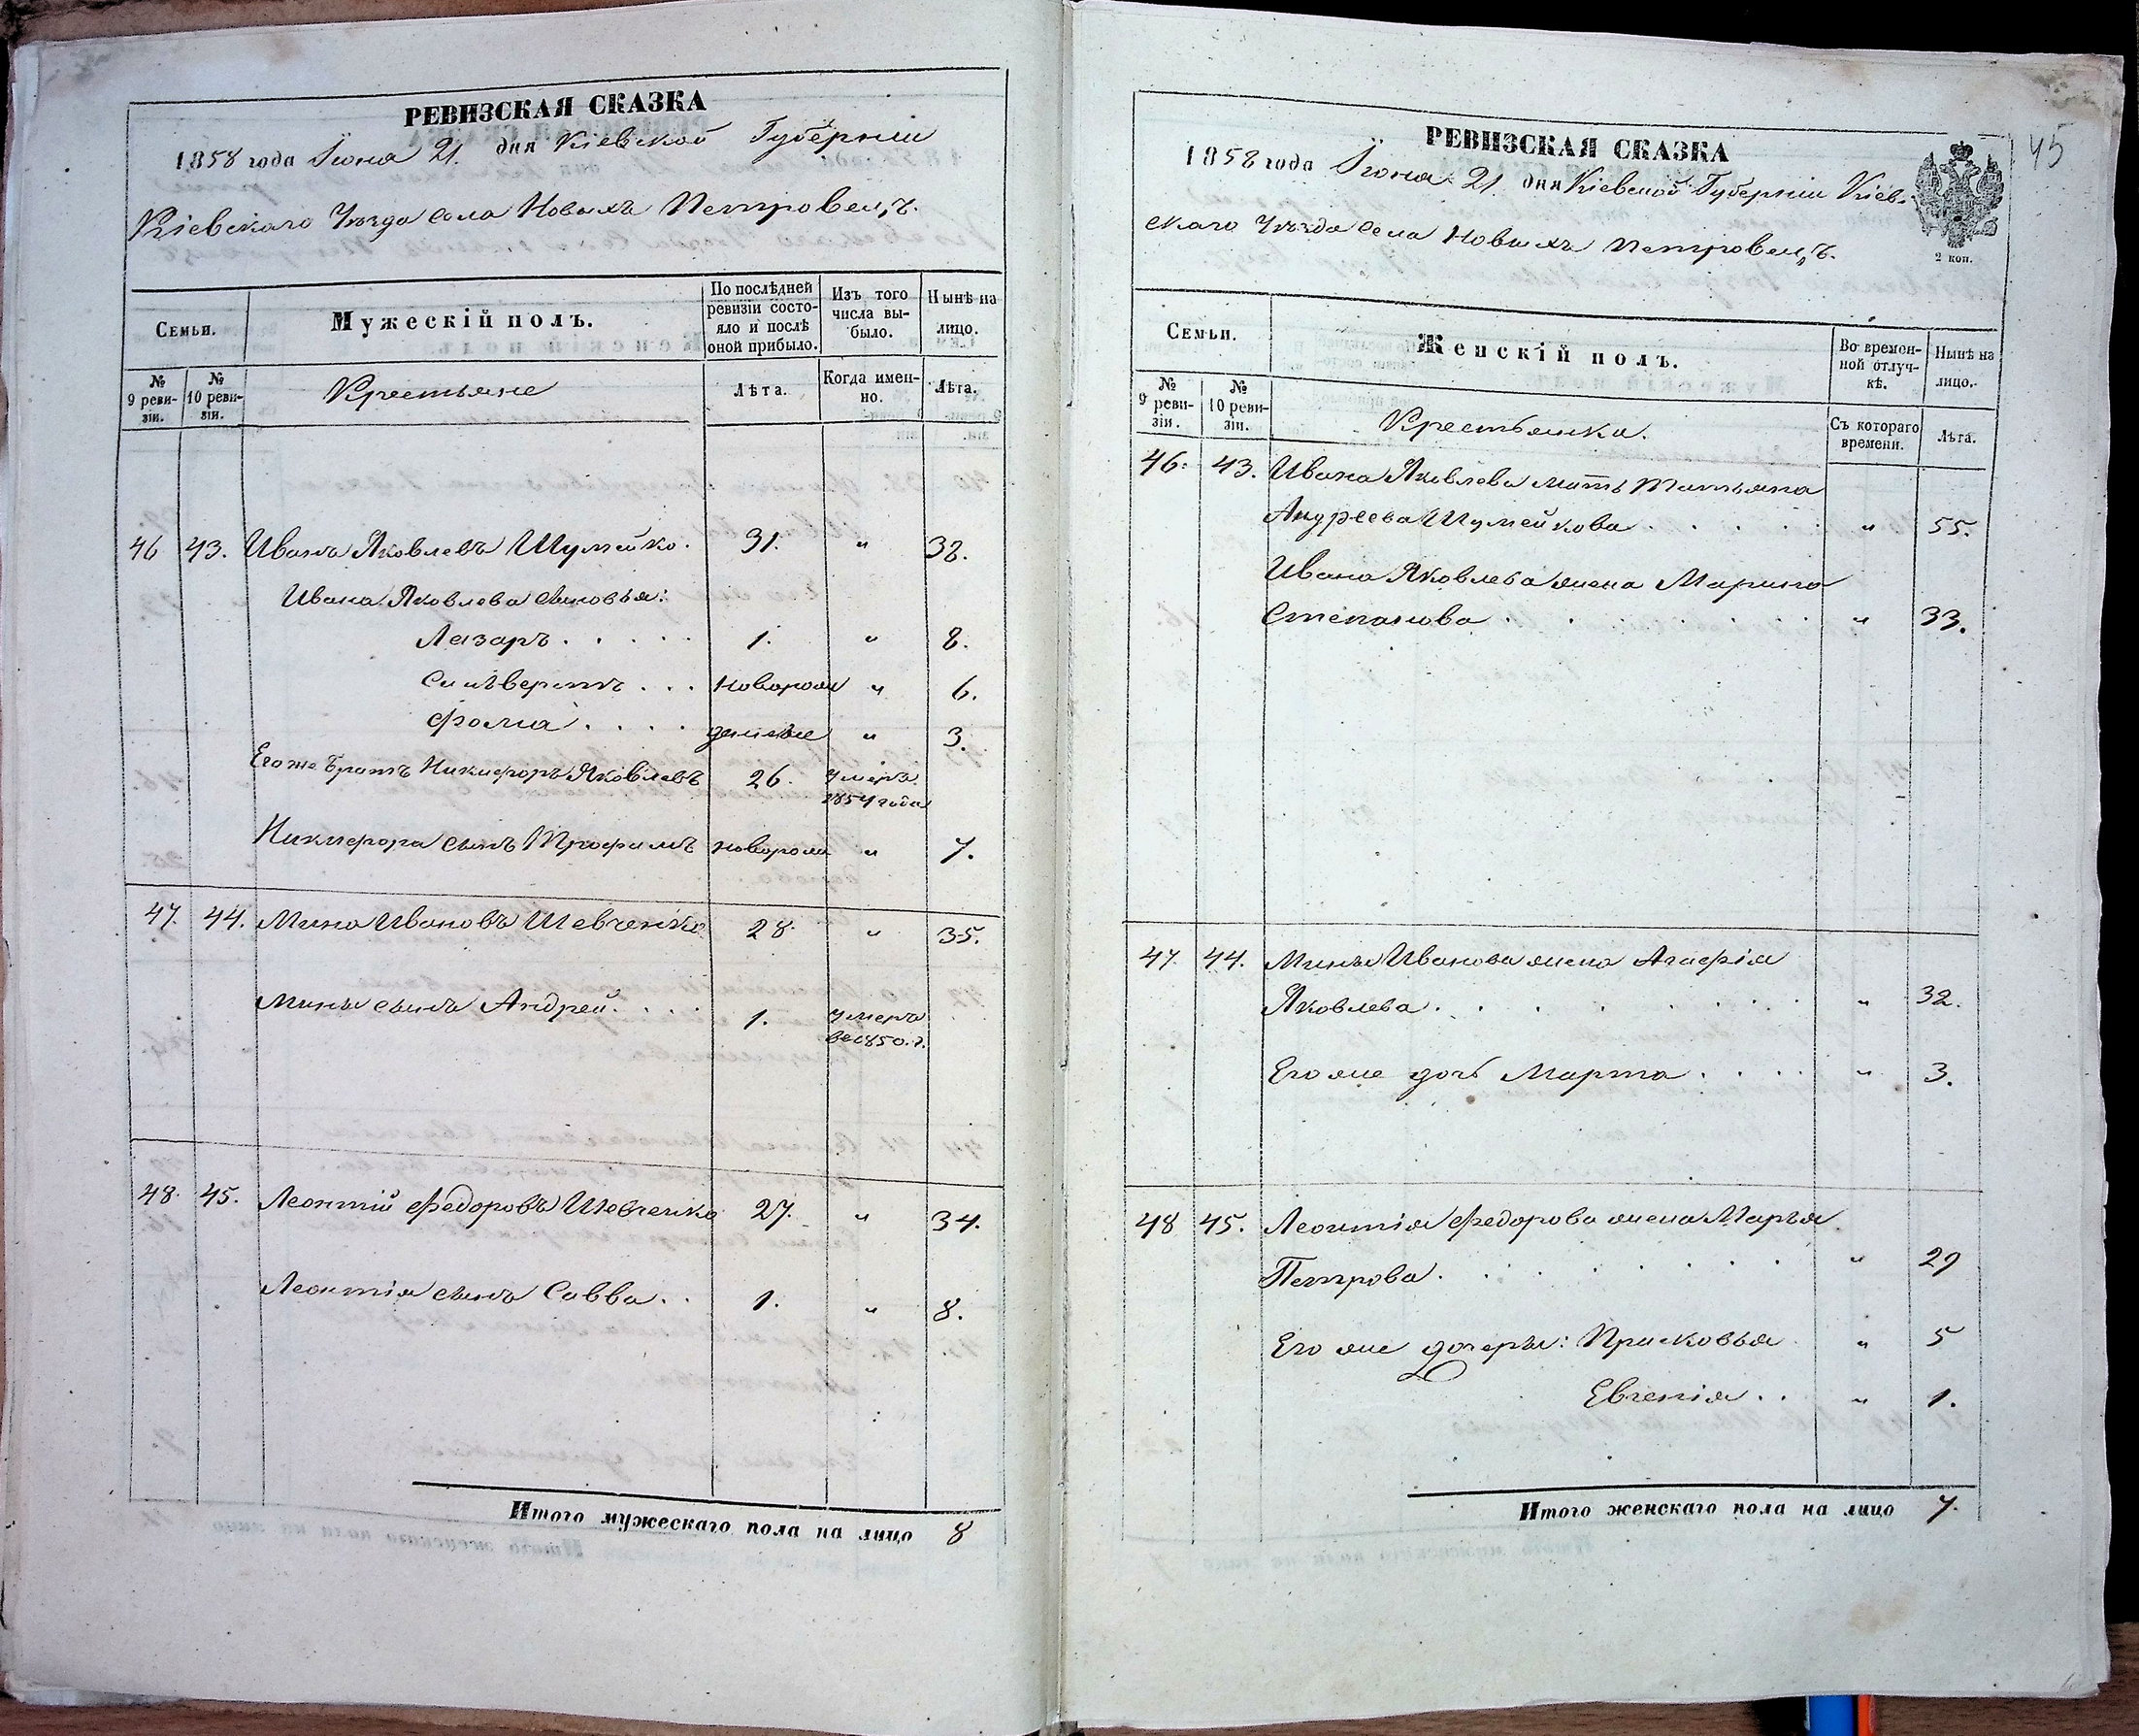 РЕВИЗСКАЯ СКАЗКА
1858 года Іюня 21. дня Кіевской Губерніи
Кіевскаго Уѣзда Села Новыхъ Петровецъ.
Семьи.
Мужескій полъ.
По послѣдней ревизіи состояло и послѣ оной прибыло.
Изъ того числа выбыло.
Нынѣ на лицо.
№ 9 ревизіи.
№ 10 ревизіи.
Крестьяне
Лѣта.
Когда именно.
Лѣта.
46 43. Иванъ Яковлевъ Шумейко. 31. " 38.
Ивана Яковлева сыновья:
Лазарь . . . . . 1. " 8.
Силѣверстъ . . . новорож " 6.
Фома . . . . денные " 3.
Его же братъ Никифоръ Яковлевъ 26. умеръ
1854 года
Никифора сынъ Трофимъ новорож " 7.
47. 44. Мина Ивановъ Шевченко 28. " 35.
Мины сынъ Андрей. . . . 1. умеръ
въ 1850. г.
48. 45. Леонтій Федоровъ Шевченко 27. " 34.
Леонтія сынъ Савва. . 1. " 8.
Итого мужескаго пола на лицо 8
45
РЕВИЗСКАЯ СКАЗКА
1858 года Іюня 21. дня Кіевской Губерніи Кіев-
скаго Уѣзда Села Новыхъ Петровецъ.
2 коп.
Семьи.
Женскій полъ.
Во временной отлучкѣ.
Нынѣ на лицо.
№ 9 ревизіи.
№ 10 ревизіи.
Крестьянка.
Съ котораго времени.
Лѣта.
46. 43. Ивана Яковлева мать Татьяна
Андреева Шумейкова . . . . . " 55.
Ивана Яковлева жена Марина
Степанова . . . . . . " 33.
47. 44. Мины Иванова жена Агафія
Яковлева . . . . . . " 32.
Его же дочь Марта . . . . " 3.
48 45. Леонтія Федорова жена Марья
Петрова . . . . . . " 29
Его же дочери: Прасковья " 5
Евгенія . . " 1.
Итого женскаго пола на лицо 7.